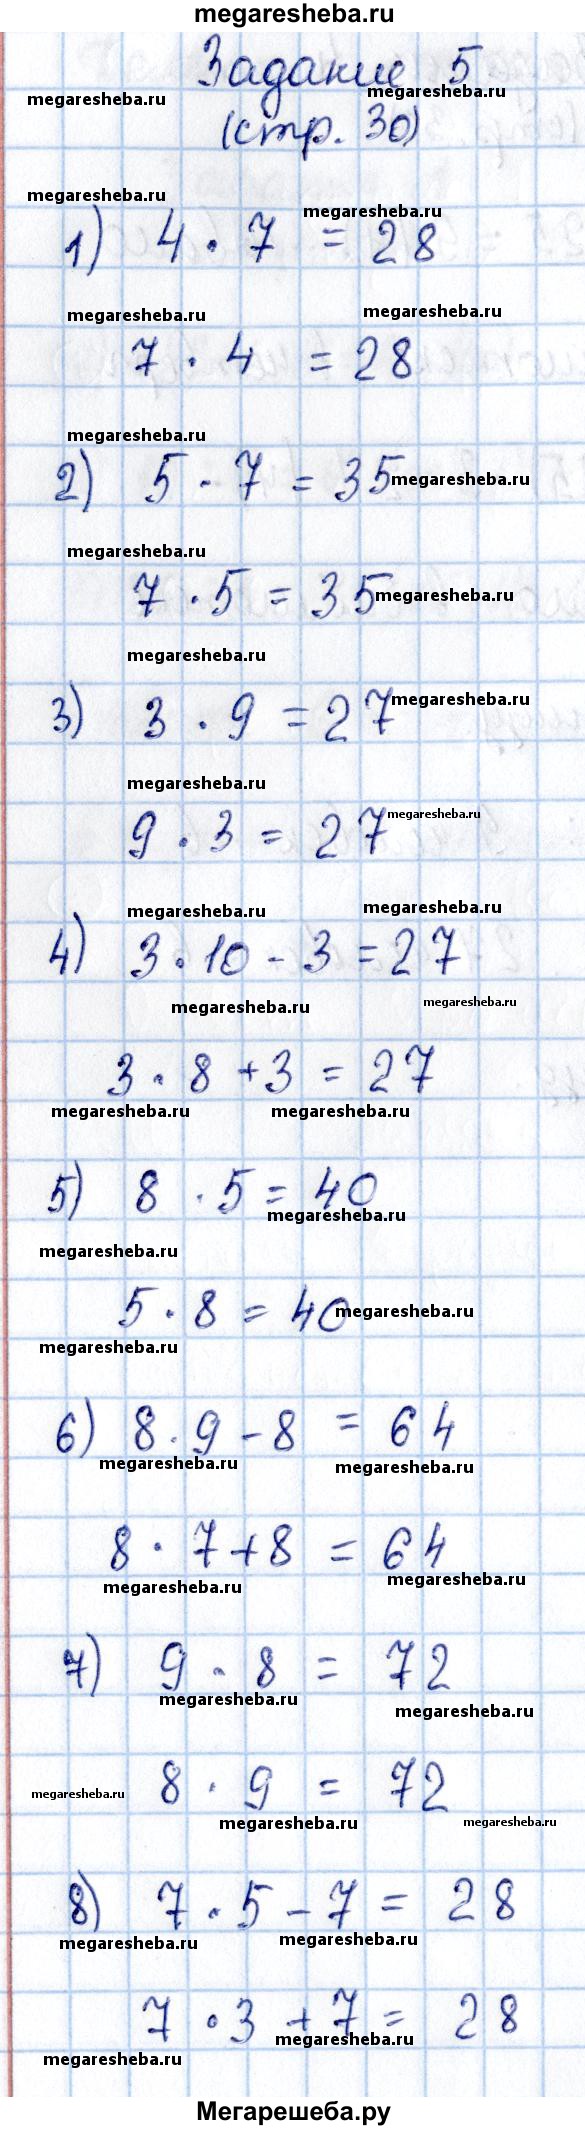 megaresheba.ru
Задание 5
megaresheba.ru megaresheba.ru
(стр. 30)
megaresheba.ru megaresheba.ru
1) 4 · 7 = 28
megaresheba.ru megaresheba.ru
7 · 4 = 28
megaresheba.ru
2) 5 · 7 = 35 megaresheba.ru
megaresheba.ru
7 · 5 = 35 megaresheba.ru
megaresheba.ru
3) 3 · 9 = 27 megaresheba.ru
megaresheba.ru
9 · 3 = 27 megaresheba.ru
megaresheba.ru megaresheba.ru
4) 3 · 10 - 3 = 27
megaresheba.ru megaresheba.ru
3 · 8 + 3 = 27
megaresheba.ru megaresheba.ru
5) 8 · 5 = 40
megaresheba.ru
megaresheba.ru
5 · 8 = 40 megaresheba.ru
megaresheba.ru
6) 8 · 9 - 8 = 64
megaresheba.ru megaresheba.ru
8 · 7 + 8 = 64
megaresheba.ru megaresheba.ru
7) 9 · 8 = 72
megaresheba.ru megaresheba.ru
megaresheba.ru 8 · 9 = 72
megaresheba.ru megaresheba.ru
8) 7 · 5 - 7 = 28
megaresheba.ru megaresheba.ru
7 · 3 + 7 = 28
megaresheba.ru
megaresheba.ru
Мегарешеба.ру